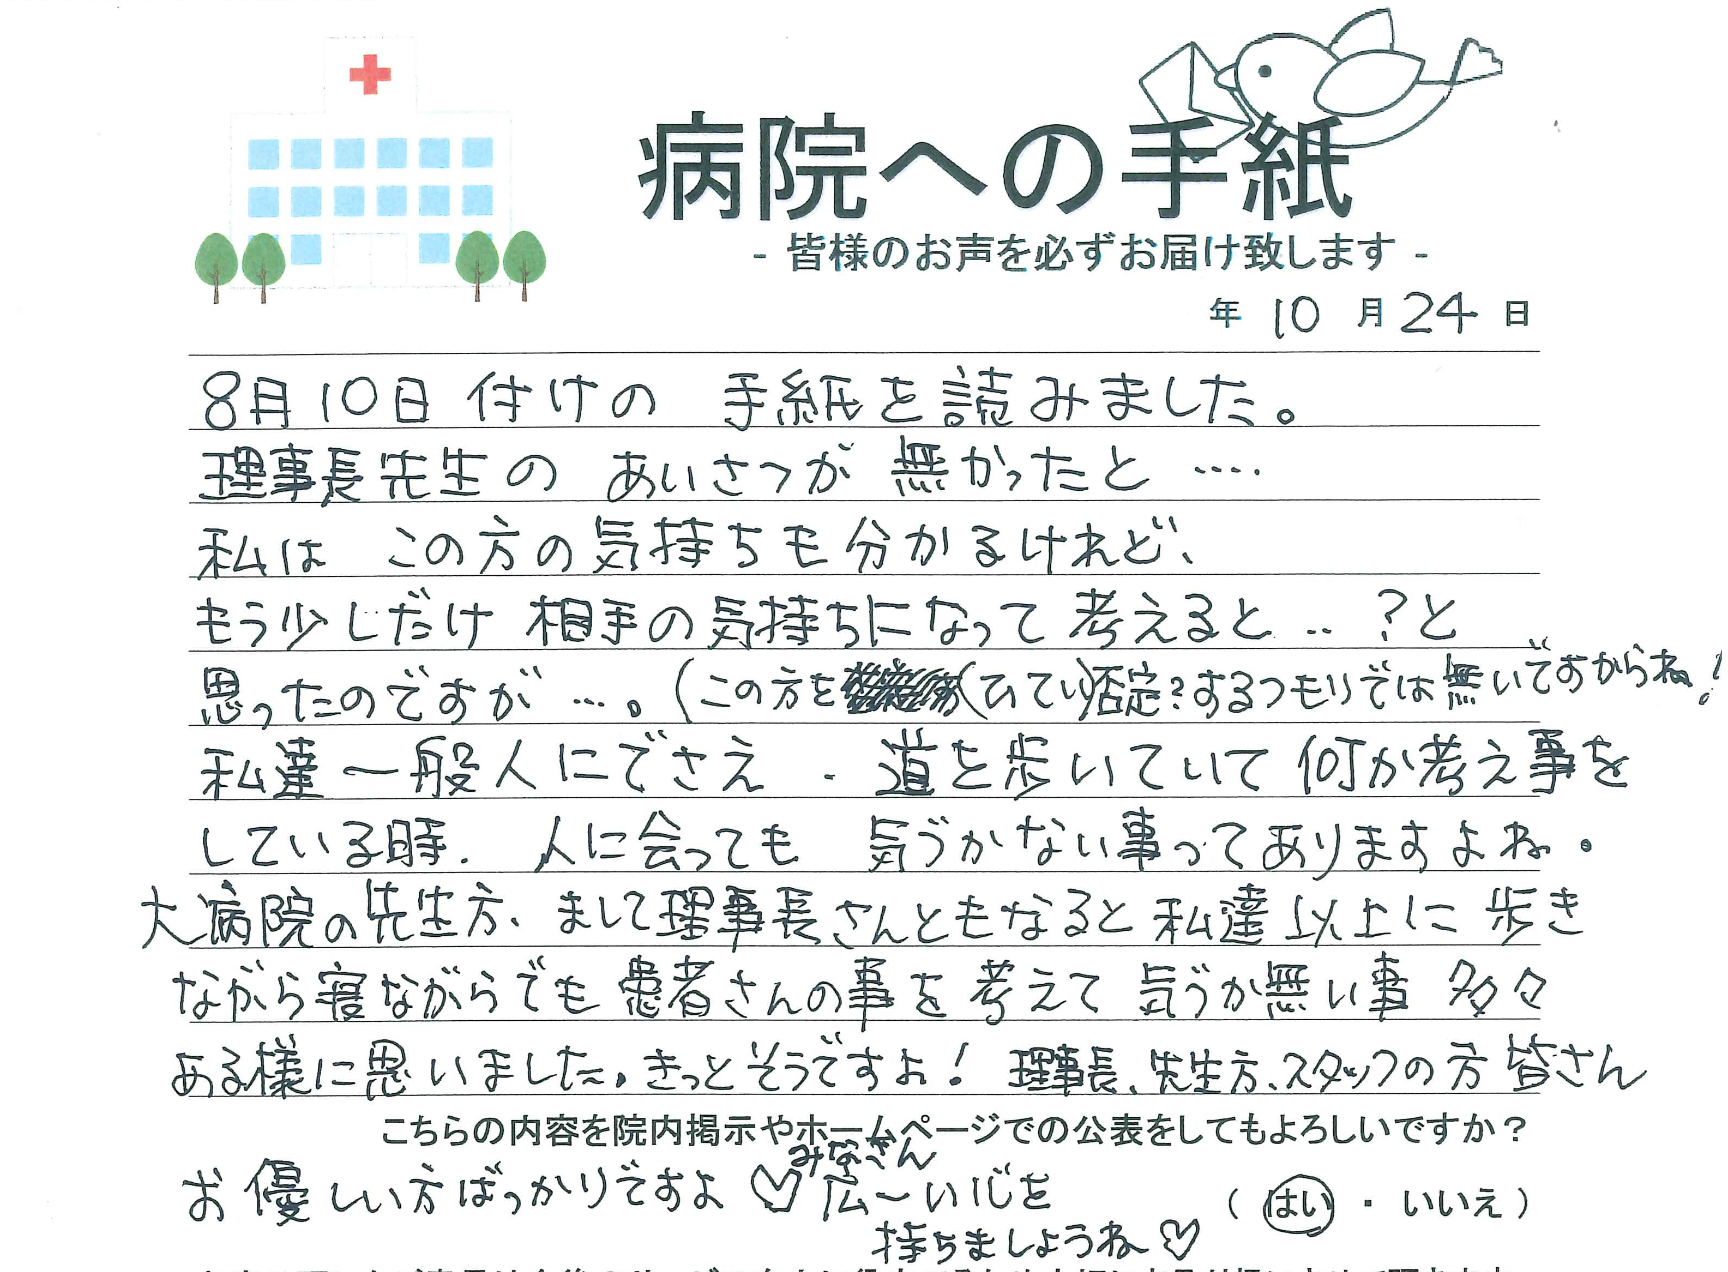 病院への手紙
- 皆様のお声を必ずお届け致します -
年 10 月 24 日
8月10日 付けの 手紙を読みました。
理事長先生の あいさつが 無かったと ‥‥
私は この方の気持ちも分かるけれど、
もう少しだけ 相手の気持ちになって 考えると‥?と
思ったのですが …。(この方を(ひてい)否定?するつもりでは無いですからね!
私達一般人にでさえ . 道を歩いていて 何か考え事を
している時. 人に会っても 気づかない事ってありますよね.
大病院の先生方、まして理事長さんともなると 私達以上に 歩き
ながら寝ながらでも 患者さんの事を 考えて 気づか無い事 多々
ある様に思いました。きっとそうですよ! 理事長、先生方、スタッフの方 皆さん
こちらの内容を院内掲示やホームページでの公表をしてもよろしいですか?
みなさん
お優しい方ばっかりですよ ♡ 広〜い心を
( はい ・ いいえ )
持ちましょうね ♡